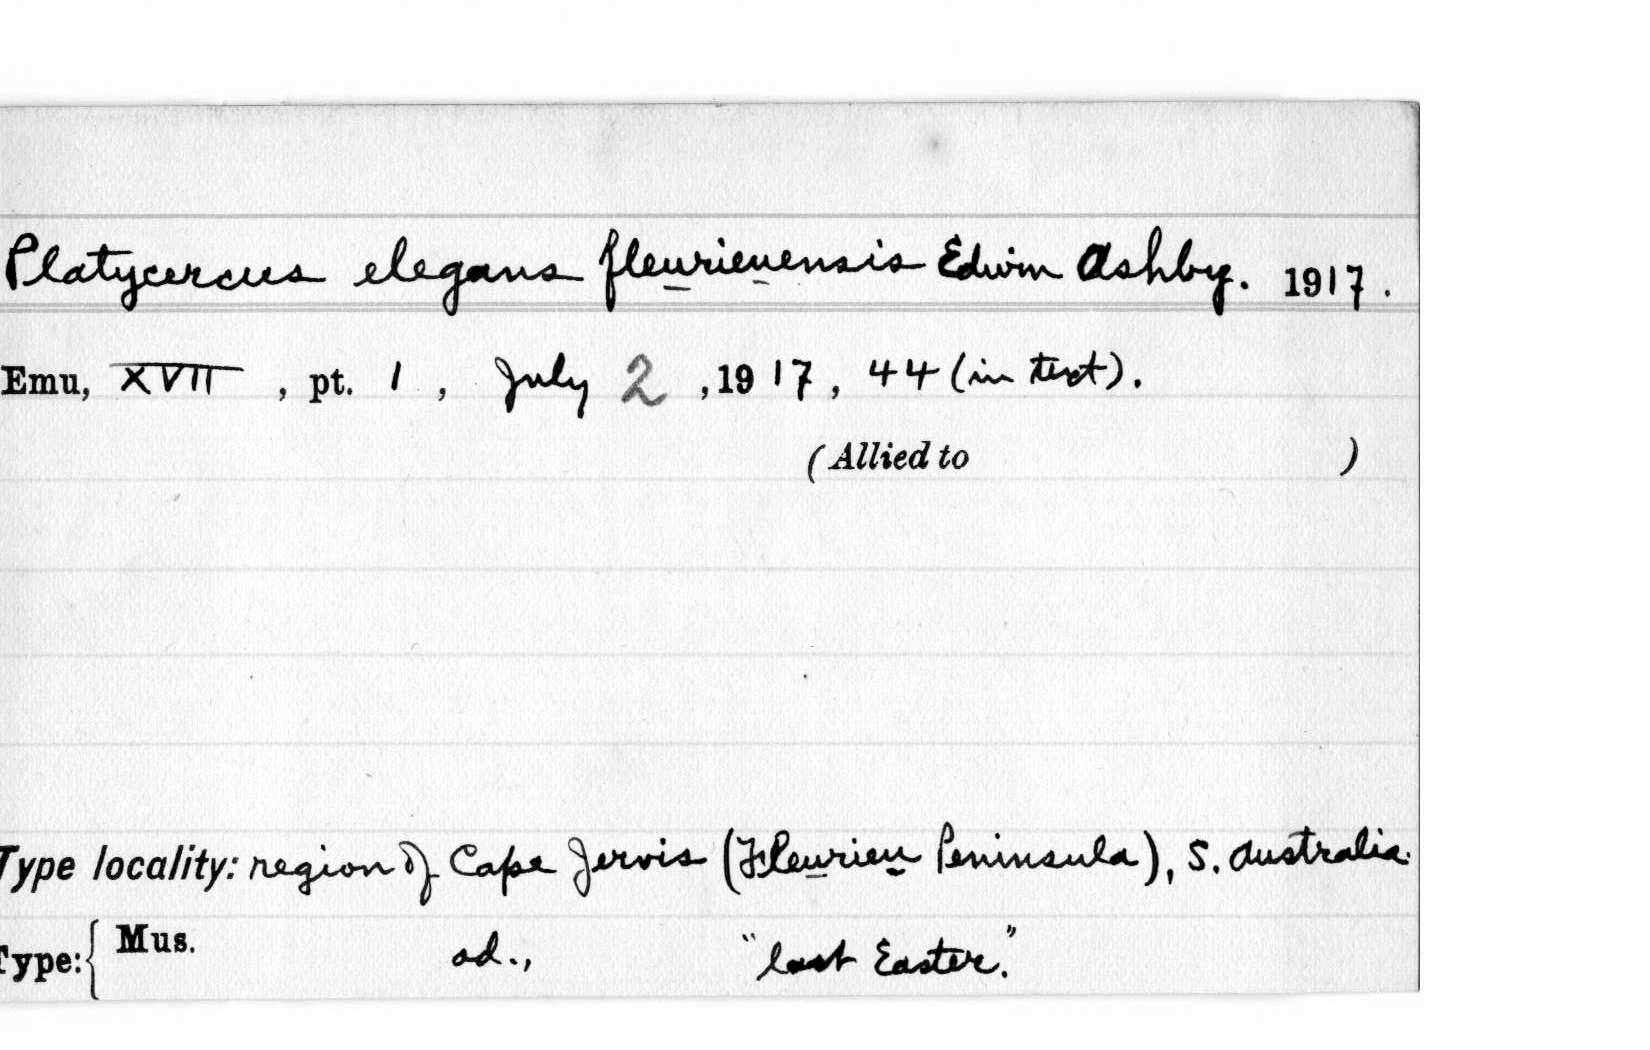 Platycercus elegans fleurieuensis Edwin Ashby. 1917.
Emu, XVII, pt. 1, July 2, 1917, 44 (in text).
(Allied to )
Type locality: region of Cape Jervis (Fleurieu Peninsula), S. Australia.
Type: { Mus. ad., "last Easter."